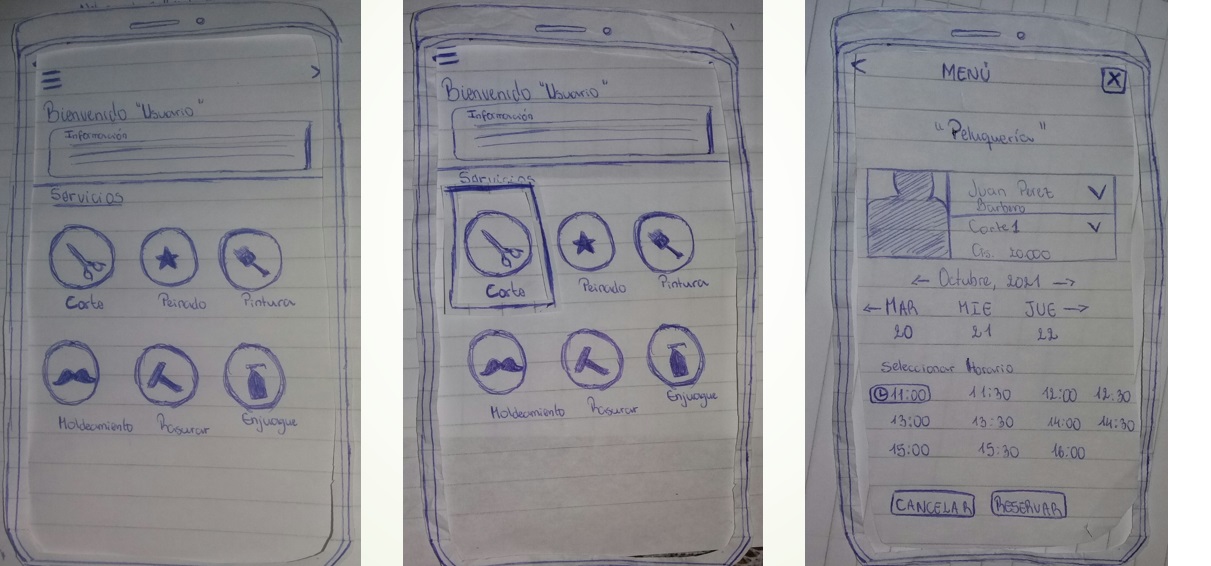 Bienvenido "Usuario"
Información
Servicios
Corte Peinado Pintura
Moldeamiento Rasurar Enjuague
Bienvenido "Usuario"
Información
Servicios
Corte Peinado Pintura
Moldeamiento Rasurar Enjuague
< MENÚ X
"Peluquería"
Juan Perez
Barbero
Corte 1
Grs. 20.000
← Octubre, 2021 →
← MAR MIE JUE →
20 21 22
Seleccionar Horario
11:00 11:30 12:00 12:30
13:00 13:30 14:00 14:30
15:00 15:30 16:00
CANCELAR RESERVAR